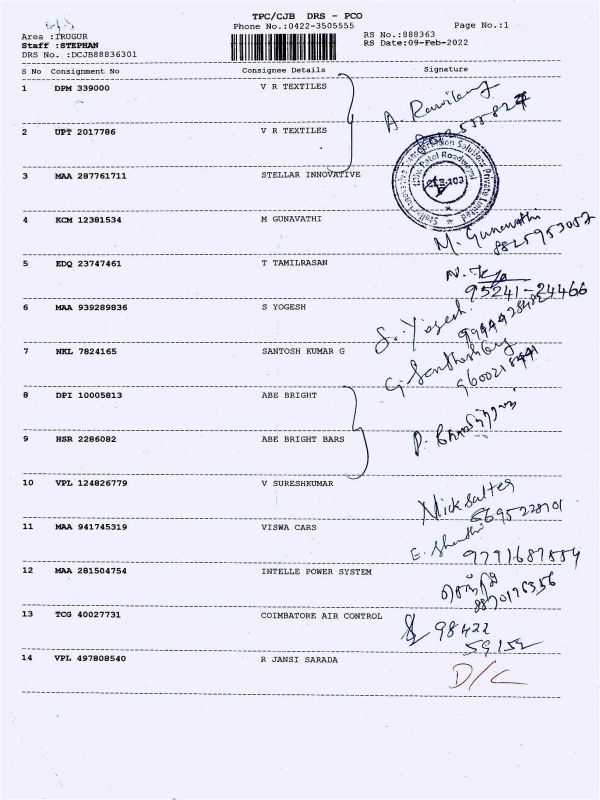 TPC/CJB DRS - PCO
Phone No.:0422-3505555 Page No.:1
Area :IRUGUR RS No.:888363
Staff :STEPHAN RS Date:09-Feb-2022
DRS No. :DCJB88836301
S No Consignment No Consignee Details Signature
1 DPM 339000 V R TEXTILES
2 UPT 2017786 V R TEXTILES
3 MAA 287761711 STELLAR INNOVATIVE
4 KCM 12381534 M GUNAVATHI M. Gunavathi
8825953052
5 EDQ 23747461 T TAMILRASAN
95241-24466
6 MAA 939289836 S YOGESH S. Yogesh
7 NKL 7824165 SANTOSH KUMAR G
8 DPI 10005813 ABE BRIGHT
9 HSR 2286082 ABE BRIGHT BARS
10 VPL 124826779 V SURESHKUMAR
11 MAA 941745319 VISWA CARS
12 MAA 281504754 INTELLE POWER SYSTEM
13 TCG 40027731 COIMBATORE AIR CONTROL 98422
59152
14 VPL 497808540 R JANSI SARADA D/C